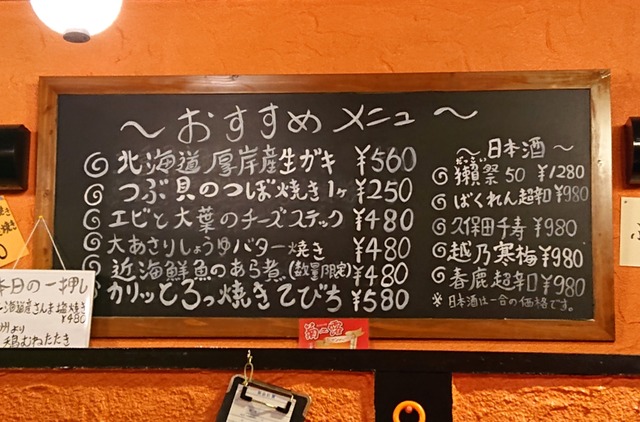 ～おすすめメニュー～
北海道厚岸産生ガキ ¥560
つぶ貝のつぼ焼き1ヶ ¥250
エビと大葉のチーズスティック ¥480
大あさりしょうゆバター焼き ¥480
近海鮮魚のあら煮(数量限定) ¥480
カリッとろっ焼きてびち ¥580
～日本酒～
だっさい
獺祭50 ¥1280
ばくれん超辛 ¥980
久保田千寿 ¥980
越乃寒梅 ¥980
春鹿超辛口 ¥980
※日本酒は一合の価格です。
本日の一押し
海道産さんま塩焼き
¥480
州より
鶏むねたたき
菊之露